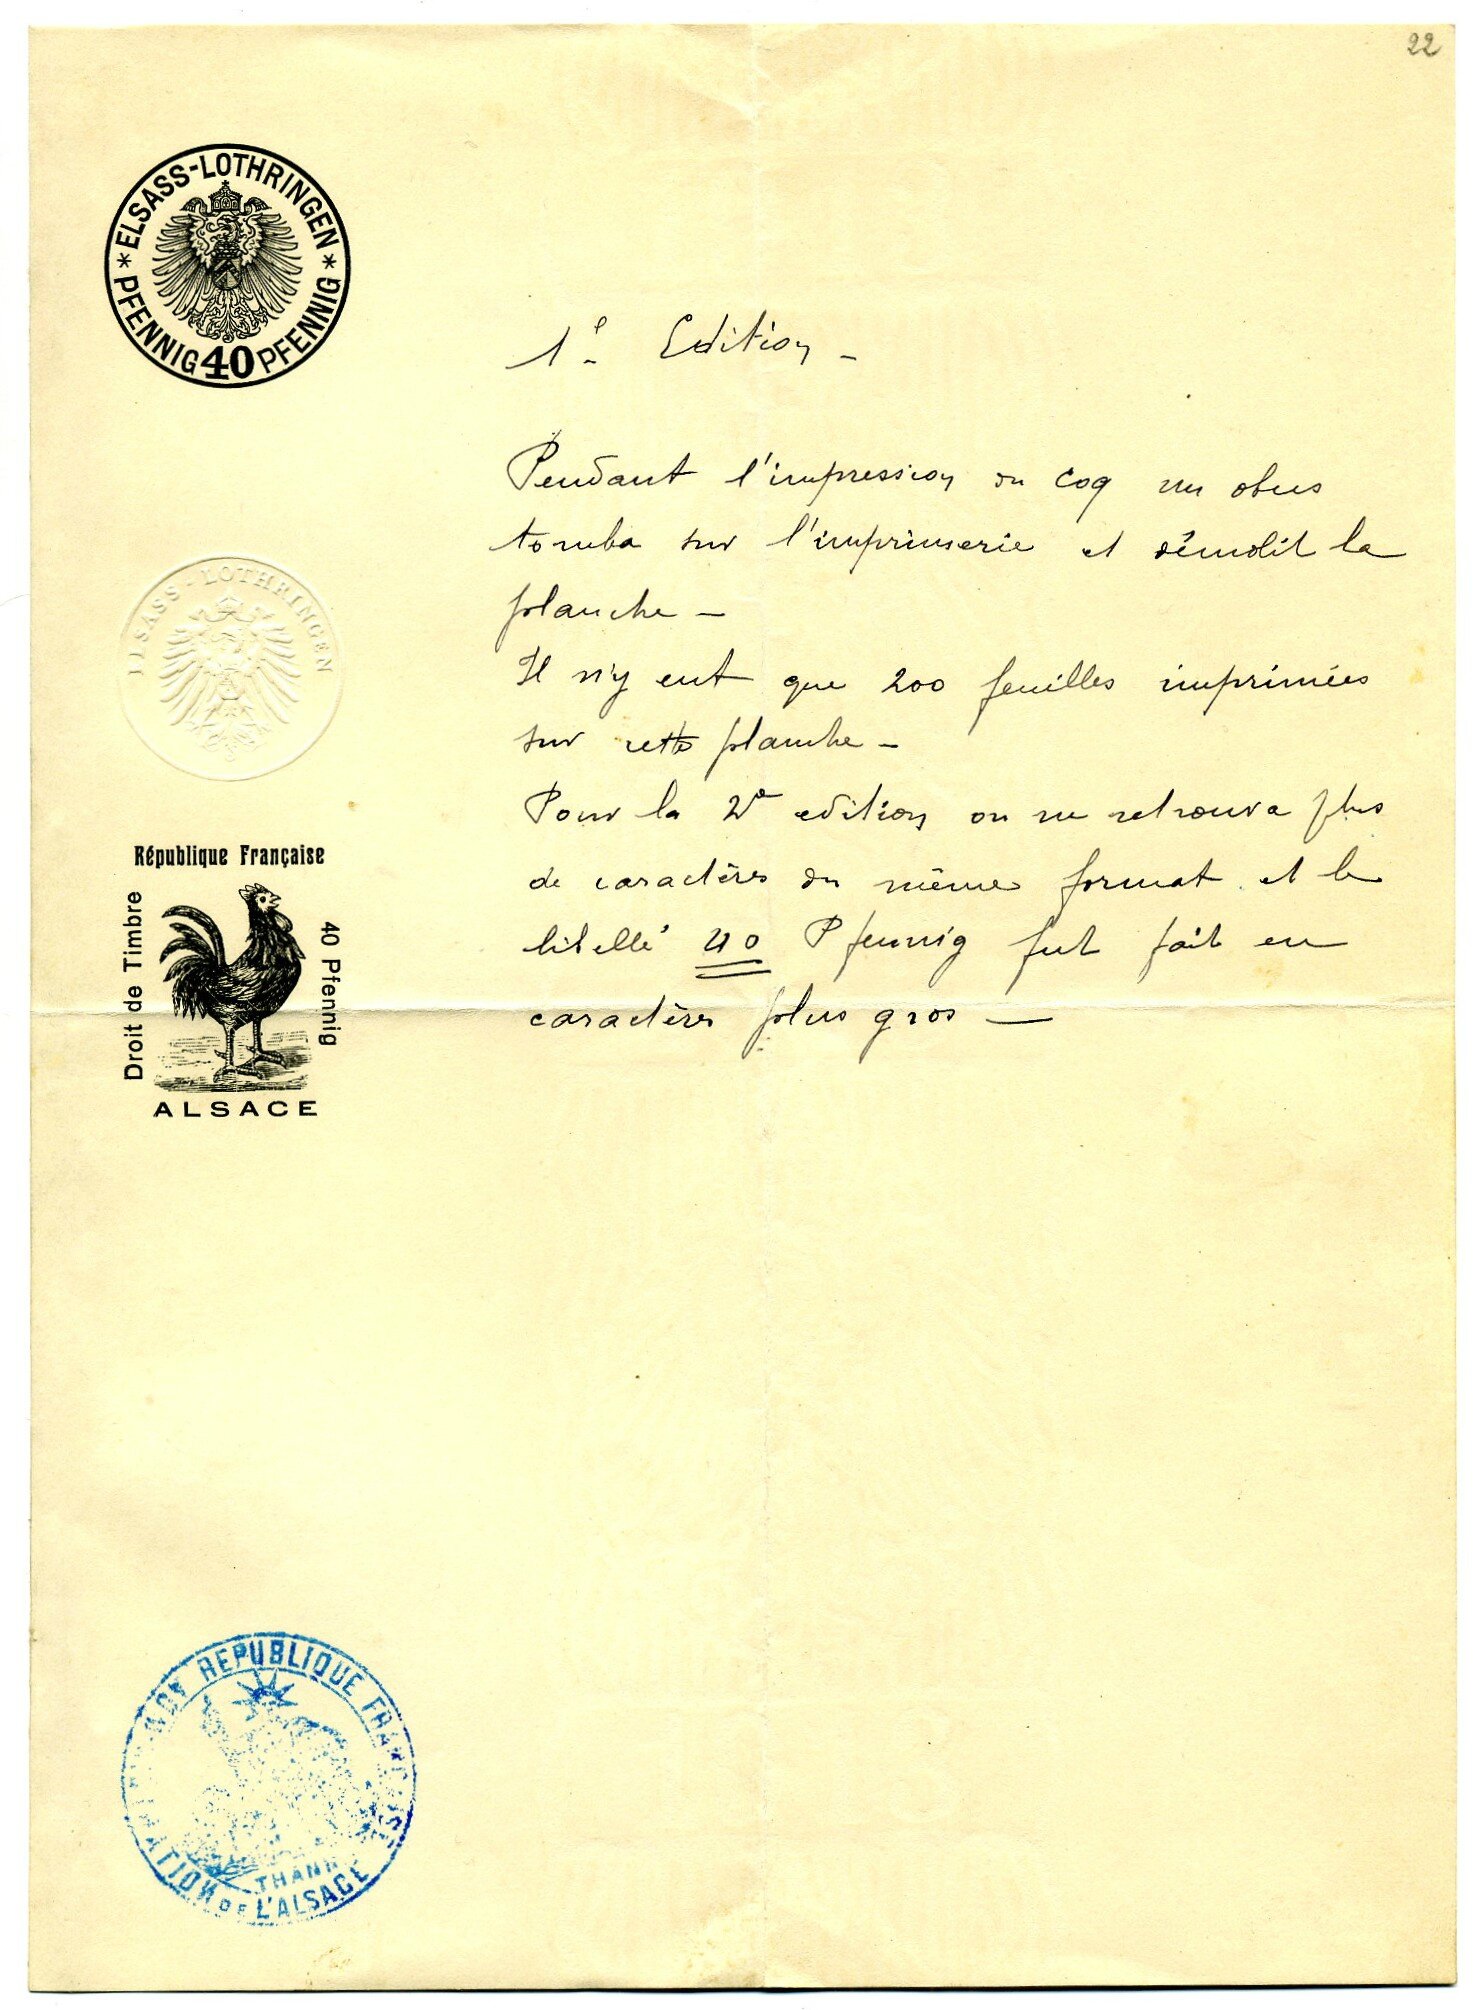 22
ELSASS-LOTHRINGEN
* PFENNIG 40 PFENNIG *
1e Edition -
Pendant l'impression du coq un obus
tomba sur l'imprimerie et démolit la
planche -
Il n'y eut que 200 feuilles imprimées
sur cette planche -
Pour la 2e edition on ne retrouva plus
de caractères du même format et le
libellé 40 Pfennig fut fait en
caractères plus gros —
ELSASS-LOTHRINGEN
République Française
Droit de Timbre
40 Pfennig
ALSACE
REPUBLIQUE FRANÇAISE
DE L'ALSACE
THANN